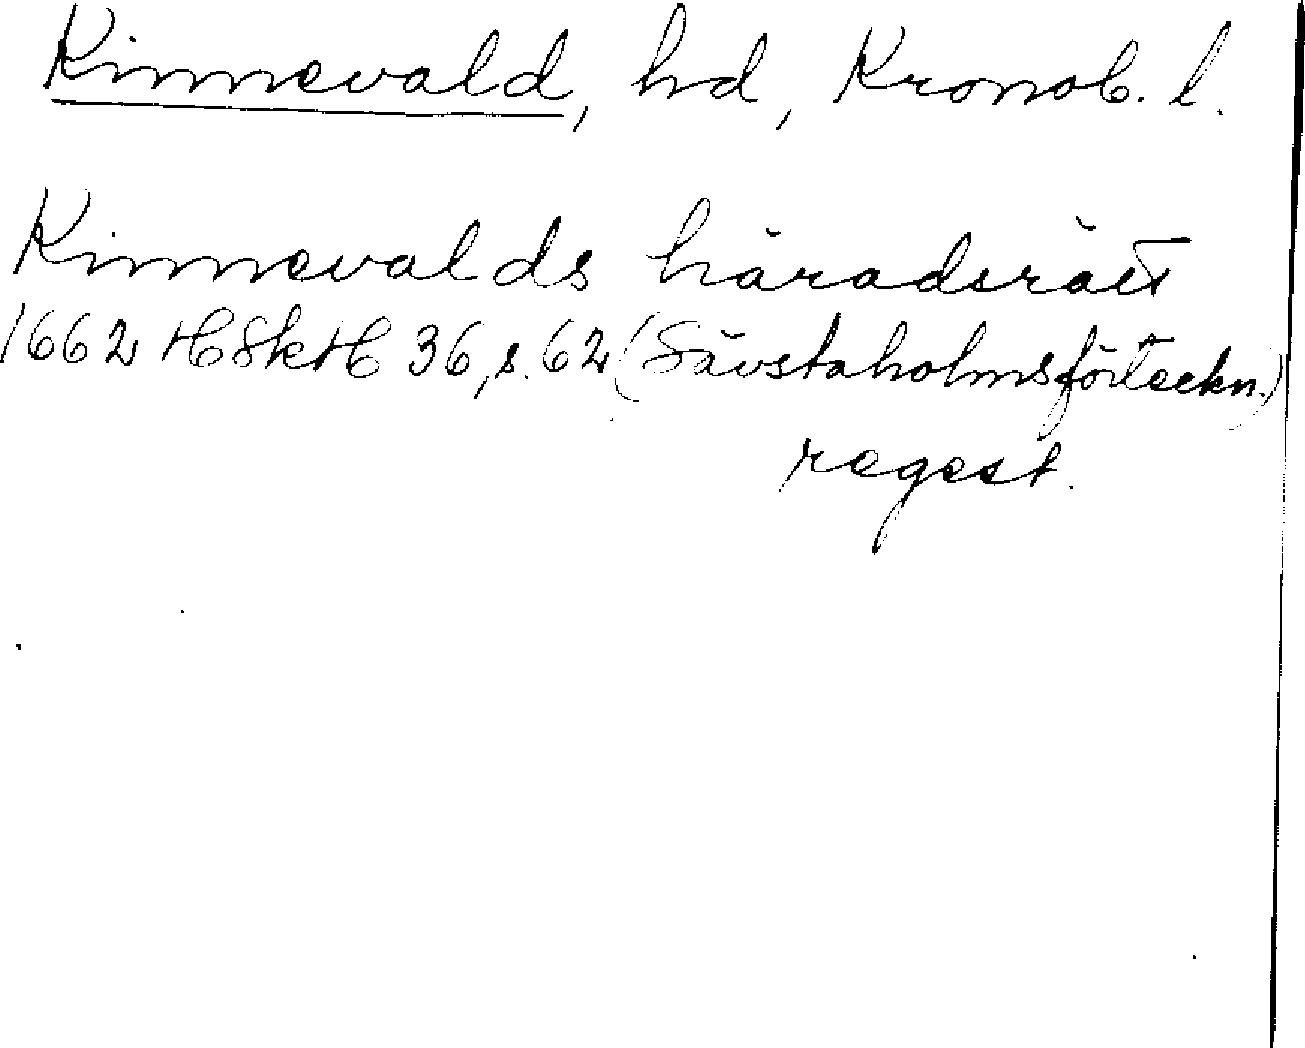 Kinnevald, hd, Kronob. l.
Kinnevalds häradsrätt
1662 HSkH 36, s. 62 (Sävstaholmsförteckn.)
regest.